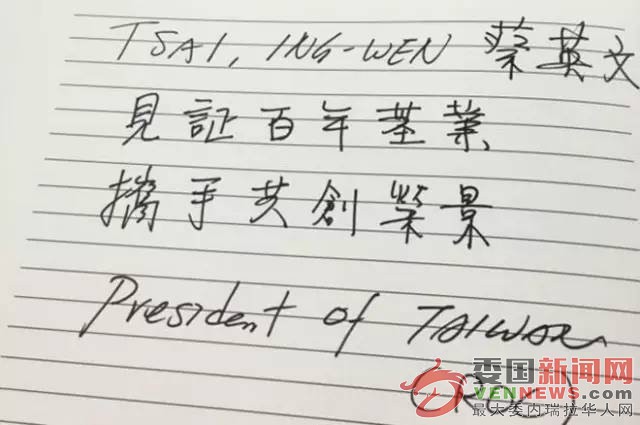 TSAI, ING-WEN 蔡英文
見証百年基業
攜手共創榮景
President of TAIWAN
(ROC)
委国新闻网
VENNEWS.COM
最大委内瑞拉华人网